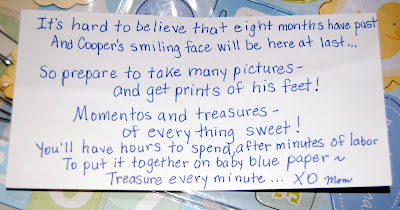 It's hard to believe that eight months have past
And Cooper's smiling face will be here at last...
So prepare to take many pictures-
and get prints of his feet!
Momentos and treasures-
of every thing sweet!
You'll have hours to spend, after minutes of labor
To put it together on baby blue paper~
Treasure every minute... XO Mom